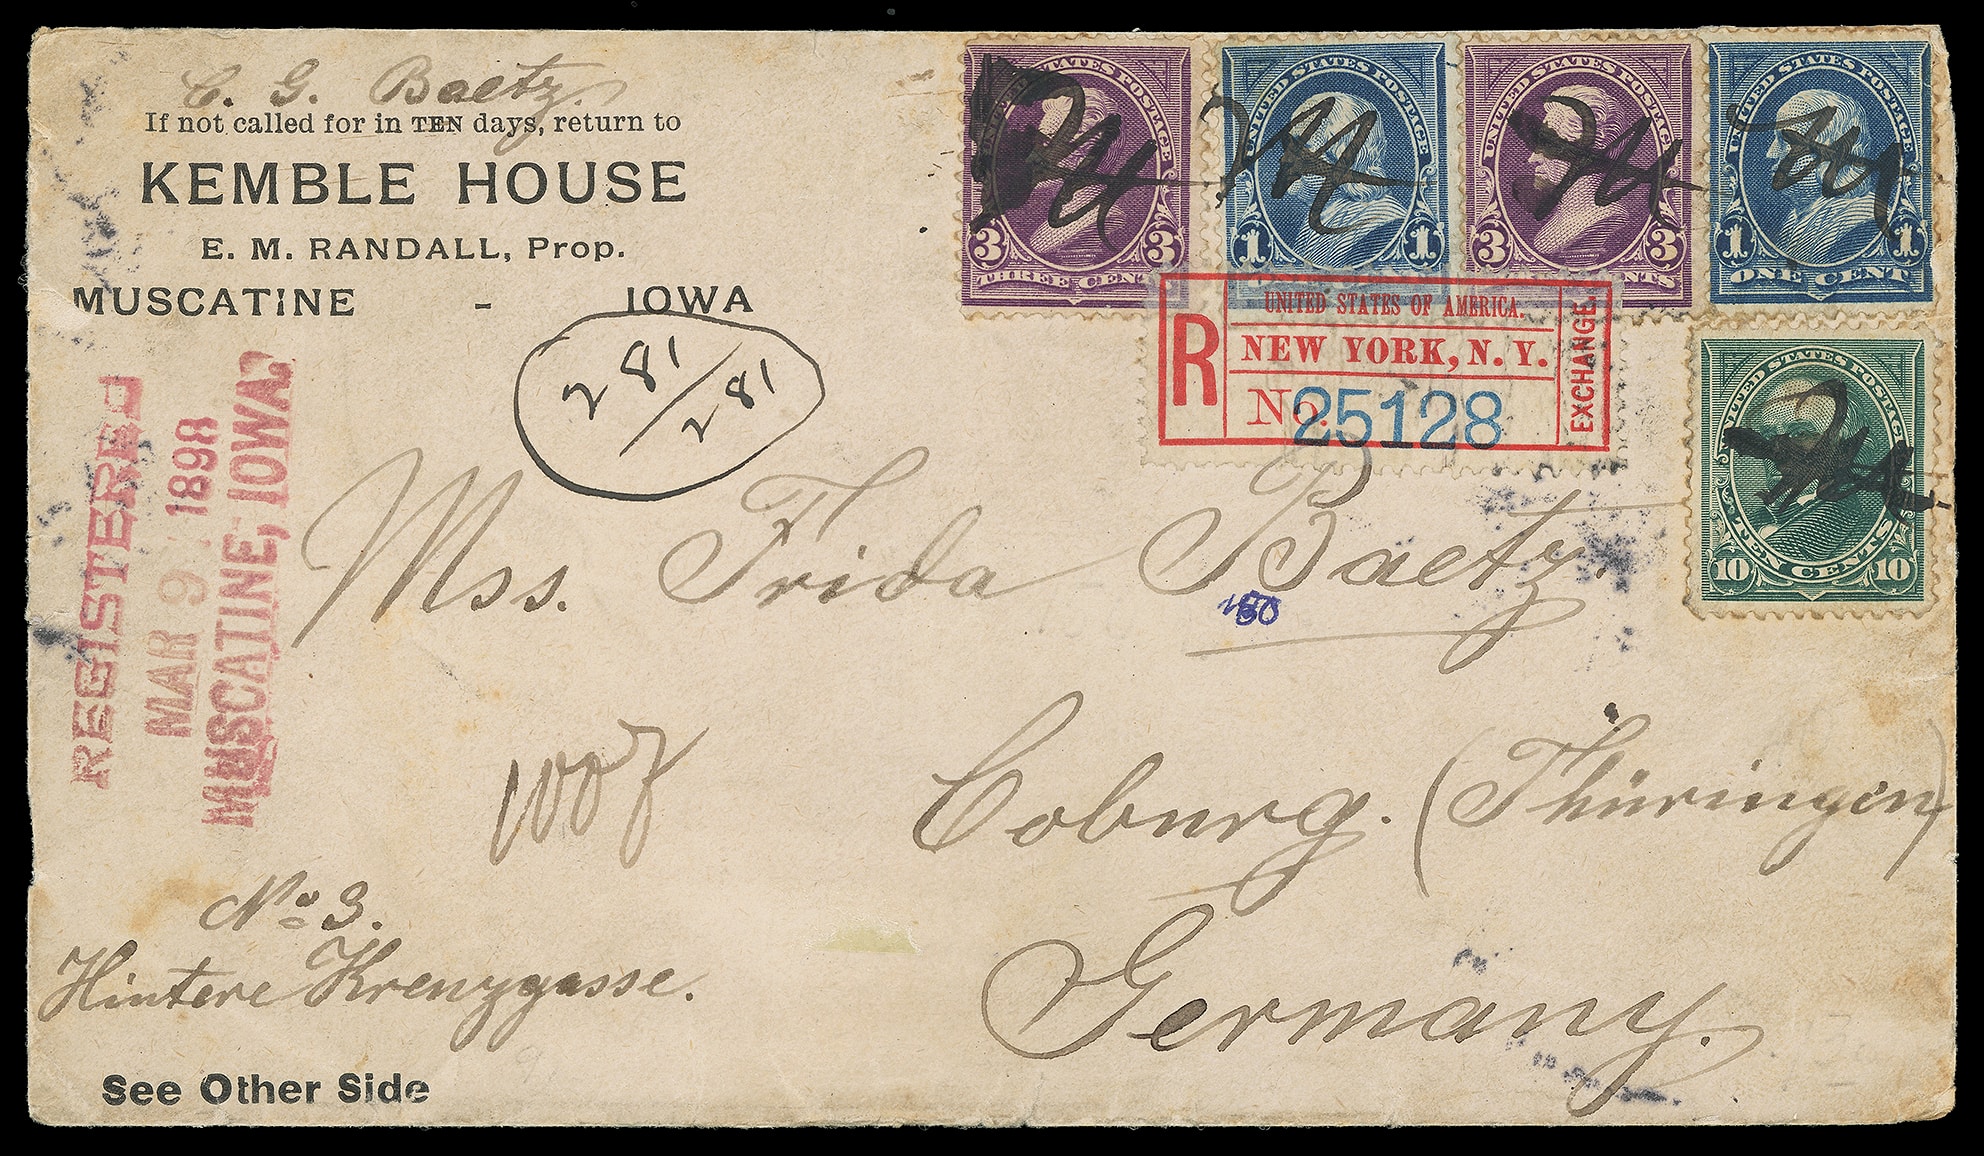 C. G. Baetz.
If not called for in TEN days, return to
KEMBLE HOUSE
E. M. RANDALL, Prop.
MUSCATINE - IOWA
281/281
UNITED STATES POSTAGE
3 3
THREE CENTS
UNITED STATES POSTAGE
1 1
UNITED STATES POSTAGE
3 3
CENTS
UNITED STATES POSTAGE
1 1
ONE CENT
UNITED STATES POSTAGE
10 10
TEN CENTS
R
UNITED STATES OF AMERICA.
NEW YORK, N. Y.
No. 25128
EXCHANGE.
REGISTERED
MAR 9 1898
MUSCATINE, IOWA.
Mss. Frida Baetz.
Coburg. (Thüringen)
Germany.
No 3.
Hintere Kreuzgasse.
See Other Side